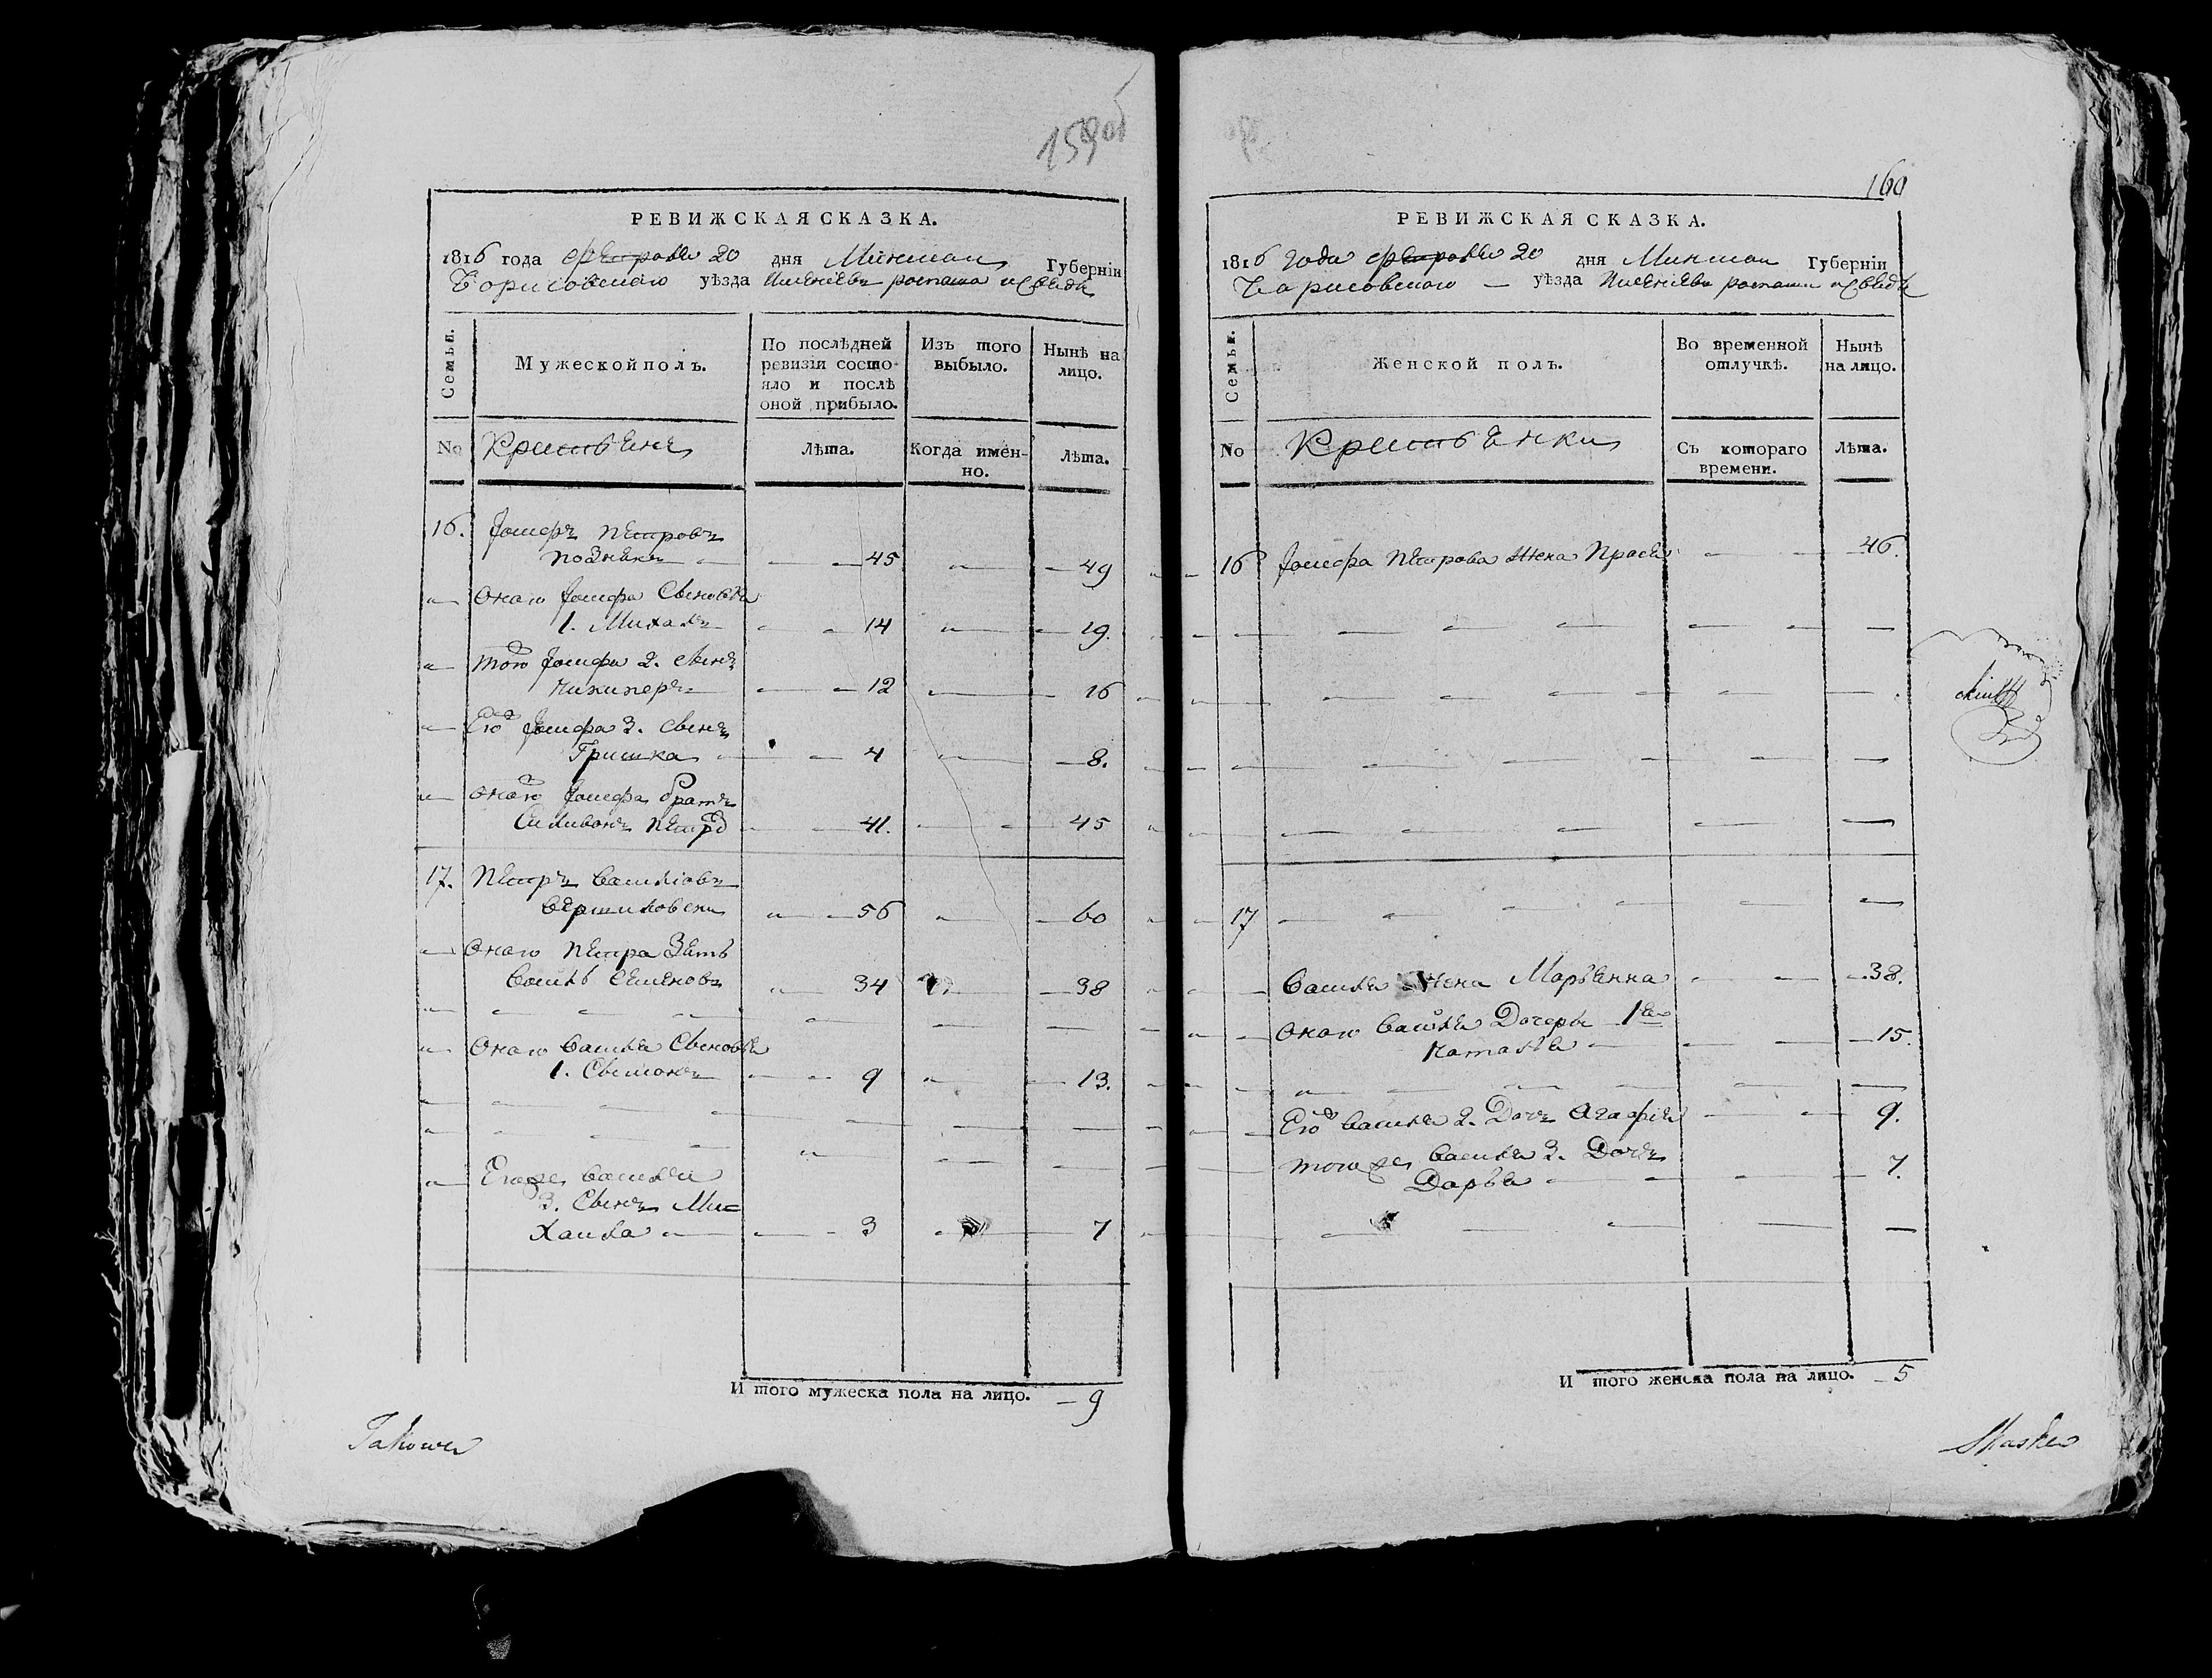 159об
РЕВИЖСКАЯ СКАЗКА.
1816 года февраля 20 дня Минской Губерніи
Борисовского уѣзда
Семьи.
Мужеской полъ.
По послѣдней ревизіи состояло и послѣ оной прибыло.
Изъ того выбыло.
Нынѣ на лицо.
No
Лѣта.
Когда имен-но.
Лѣта.
16. Іосифъ Петровъ
Позняка — 45 — 49
Оного Іосифа Сыновья
1. Михалъ — 14 — 19.
Того Іосифа 2. сынъ
Никиперъ — 12 — 16
Его Іосифа 3. сынъ
Гришка — 4 — 8.
Оного Іосифа братъ
Силивонъ — 41. — 45
17. Петръ Васильовъ
— 56 — 60
Оного Петра Зять
Василь Семеновъ — 34 — 38
Оного Василя Сыновья
1. — 9 — 13.
Егоже Василя
3. Сынъ Ми=
хаила — 3 — 7
И того мужеска пола на лицо. — 9
160
РЕВИЖСКАЯ СКАЗКА.
1816 года февраля 20 дня Минской Губерніи
Борисовского — уѣзда
Семьи.
Женской полъ.
Во временной отлучкѣ.
Нынѣ на лицо.
No
Съ котораго времени.
Лѣта.
16 Іосифа Петрова жена — 46.
17
Василя жена Марьянна — 38.
Оного Василя Дочеры 1я
Наталья — 15.
Его Василя 2. Дочь Агафія — 9.
тогоже Василя 3. Дочь
Дарья — 7.
И того женска пола на лицо. — 5